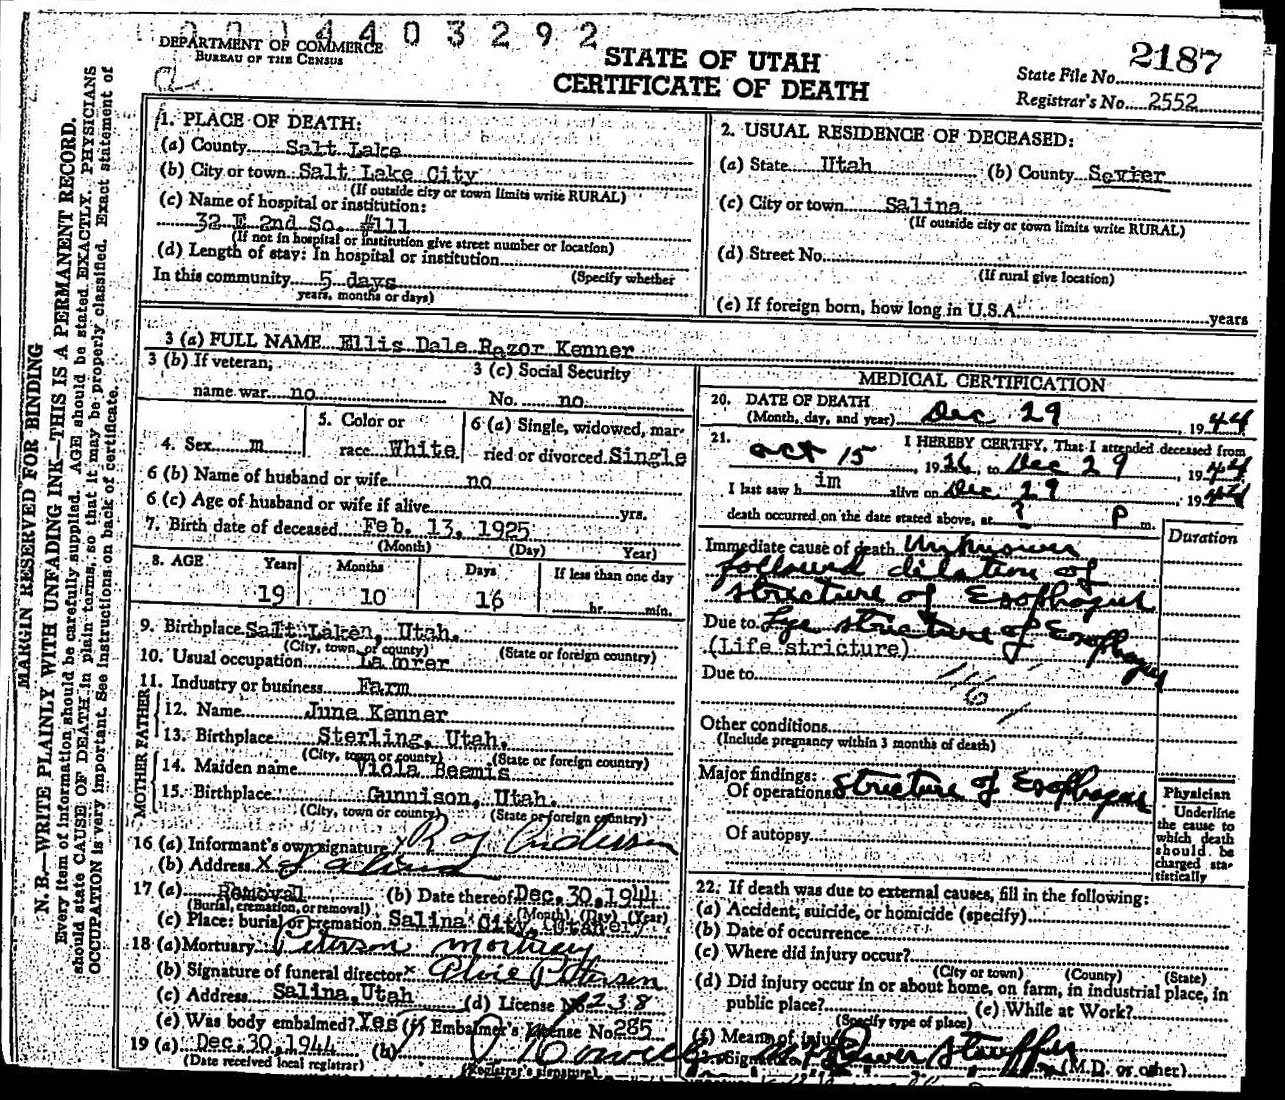 0 0 1 4 4 0 3 2 9 2
DEPARTMENT OF COMMERCE
BUREAU OF THE CENSUS
STATE OF UTAH
CERTIFICATE OF DEATH
2187
State File No.
Registrar's No. 2552
MARGIN RESERVED FOR BINDING
N. B.—WRITE PLAINLY WITH UNFADING INK—THIS IS A PERMANENT RECORD.
Every item of information should be carefully supplied. AGE should be stated EXACTLY. PHYSICIANS
should state CAUSE OF DEATH in plain terms, so that it may be properly classified. Exact statement of
OCCUPATION is very important. See instructions on back of certificate.
1. PLACE OF DEATH:
(a) County Salt Lake
(b) City or town Salt Lake City
(If outside city or town limits write RURAL)
(c) Name of hospital or institution:
32 E 2nd So. #111
(If not in hospital or institution give street number or location)
(d) Length of stay: In hospital or institution
(Specify whether
In this community 5 days
years, months or days)
2. USUAL RESIDENCE OF DECEASED:
(a) State Utah (b) County Sevier
(c) City or town Salina
(If outside city or town limits write RURAL)
(d) Street No.
(If rural give location)
(e) If foreign born, how long in U.S.A. years
3 (a) FULL NAME Ellis Dale Razor Kenner
3 (b) If veteran, name war no
3 (c) Social Security No. no
4. Sex m
5. Color or race White
6 (a) Single, widowed, married or divorced Single
6 (b) Name of husband or wife no
6 (c) Age of husband or wife if alive yrs.
7. Birth date of deceased Feb. 13, 1925
(Month) (Day) Year)
8. AGE Years Months Days If less than one day
19 10 16 hr. min.
9. Birthplace Salt Laken, Utah.
(City, town, or county) (State or foreign country)
10. Usual occupation
11. Industry or business Farm
FATHER
12. Name June Kenner
13. Birthplace Sterling, Utah.
(City, town or county) (State or foreign country)
MOTHER
14. Maiden name Viola Beemis
15. Birthplace Gunnison, Utah.
(City, town or county) (State or foreign country)
16 (a) Informant's own signature Roy Anderson
(b) Address x Salina
17 (a) Removal (b) Date thereof Dec. 30, 1944
(Burial, cremation, or removal) (Month) (Day) (Year)
(c) Place: burial or cremation Salina City, Utah
18 (a) Mortuary Peterson Mortuary
(b) Signature of funeral director x Alvie Peterson
(c) Address Salina, Utah (d) License No. 1238
(e) Was body embalmed? Yes (f) Embalmer's License No. 285
19 (a) Dec. 30, 1944 (b)
(Date received local registrar) (Registrar's signature)
MEDICAL CERTIFICATION
20. DATE OF DEATH
(Month, day, and year) Dec 29, 1944
21. I HEREBY CERTIFY, That I attended deceased from
Oct 15, 1926, to Dec 29, 1944
I last saw him alive on Dec 29, 1944
death occurred on the date stated above, at ? P m.
Duration
Immediate cause of death Unknown
followed dilation of
stricture of Esophagus
Due to Lye stricture of Esophagus
(Life stricture)
Due to
116
Other conditions
(Include pregnancy within 3 months of death)
Major findings:
Of operations Stricture of Esophagus
Of autopsy
Physician
Underline
the cause to
which death
should be
charged sta-
tistically
22. If death was due to external causes, fill in the following:
(a) Accident, suicide, or homicide (specify)
(b) Date of occurrence
(c) Where did injury occur?
(City or town) (County) (State)
(d) Did injury occur in or about home, on farm, in industrial place, in
public place? (e) While at Work?
(Specify type of place)
(f) Means of injury
23. Signature Stauffer (M.D. or other)